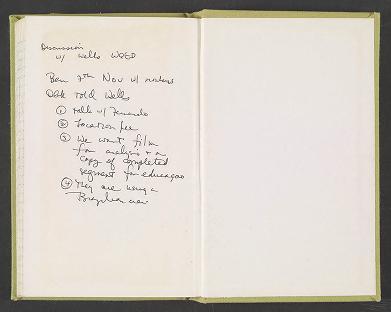 Discussion
w/ Wells WQED
7th Nov w/
Told Wells
① Talk w/ Fernando
② Location fee
③ We want film
for analysis + a
copy of completed
segment for educaçao
④ They are using a
Brazilian crew